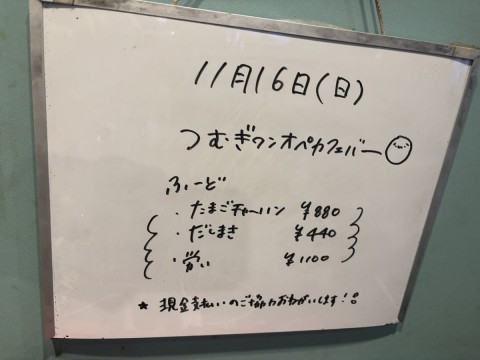 11月16日(日)
つむぎワンオペカフェバー
ふーど
・たまごチャーハン ¥880
・だしまき ¥440
・労い ¥1100
★ 現金支払いのご協力おねがいします!